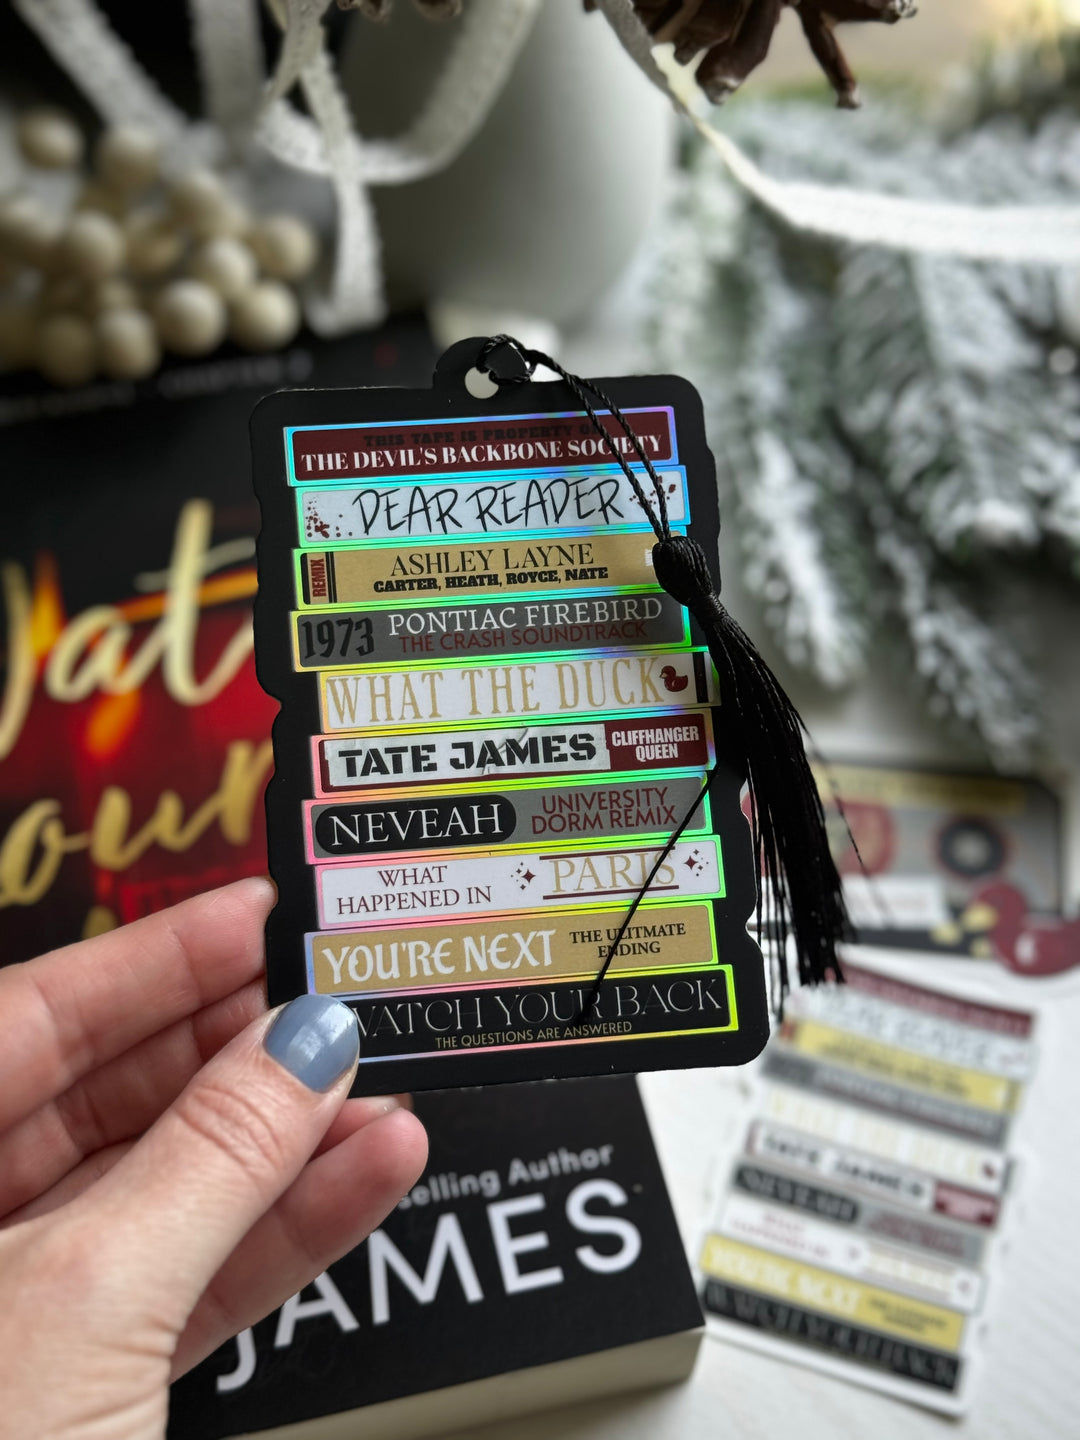 THIS TAPE IS PROPERTY OF
THE DEVIL'S BACKBONE SOCIETY
DEAR READER
REMIX
ASHLEY LAYNE
CARTER, HEATH, ROYCE, NATE
1973
PONTIAC FIREBIRD
THE CRASH SOUNDTRACK
WHAT THE DUCK
TATE JAMES
CLIFFHANGER
QUEEN
NEVEAH
UNIVERSITY
DORM REMIX
WHAT
HAPPENED IN
PARIS
YOU'RE NEXT
THE ULITMATE
ENDING
WATCH YOUR BACK
THE QUESTIONS ARE ANSWERED
selling Author
JAMES
TATE JAMES
NEVEAH
YOU'RE NEXT
WATCH YOUR BACK